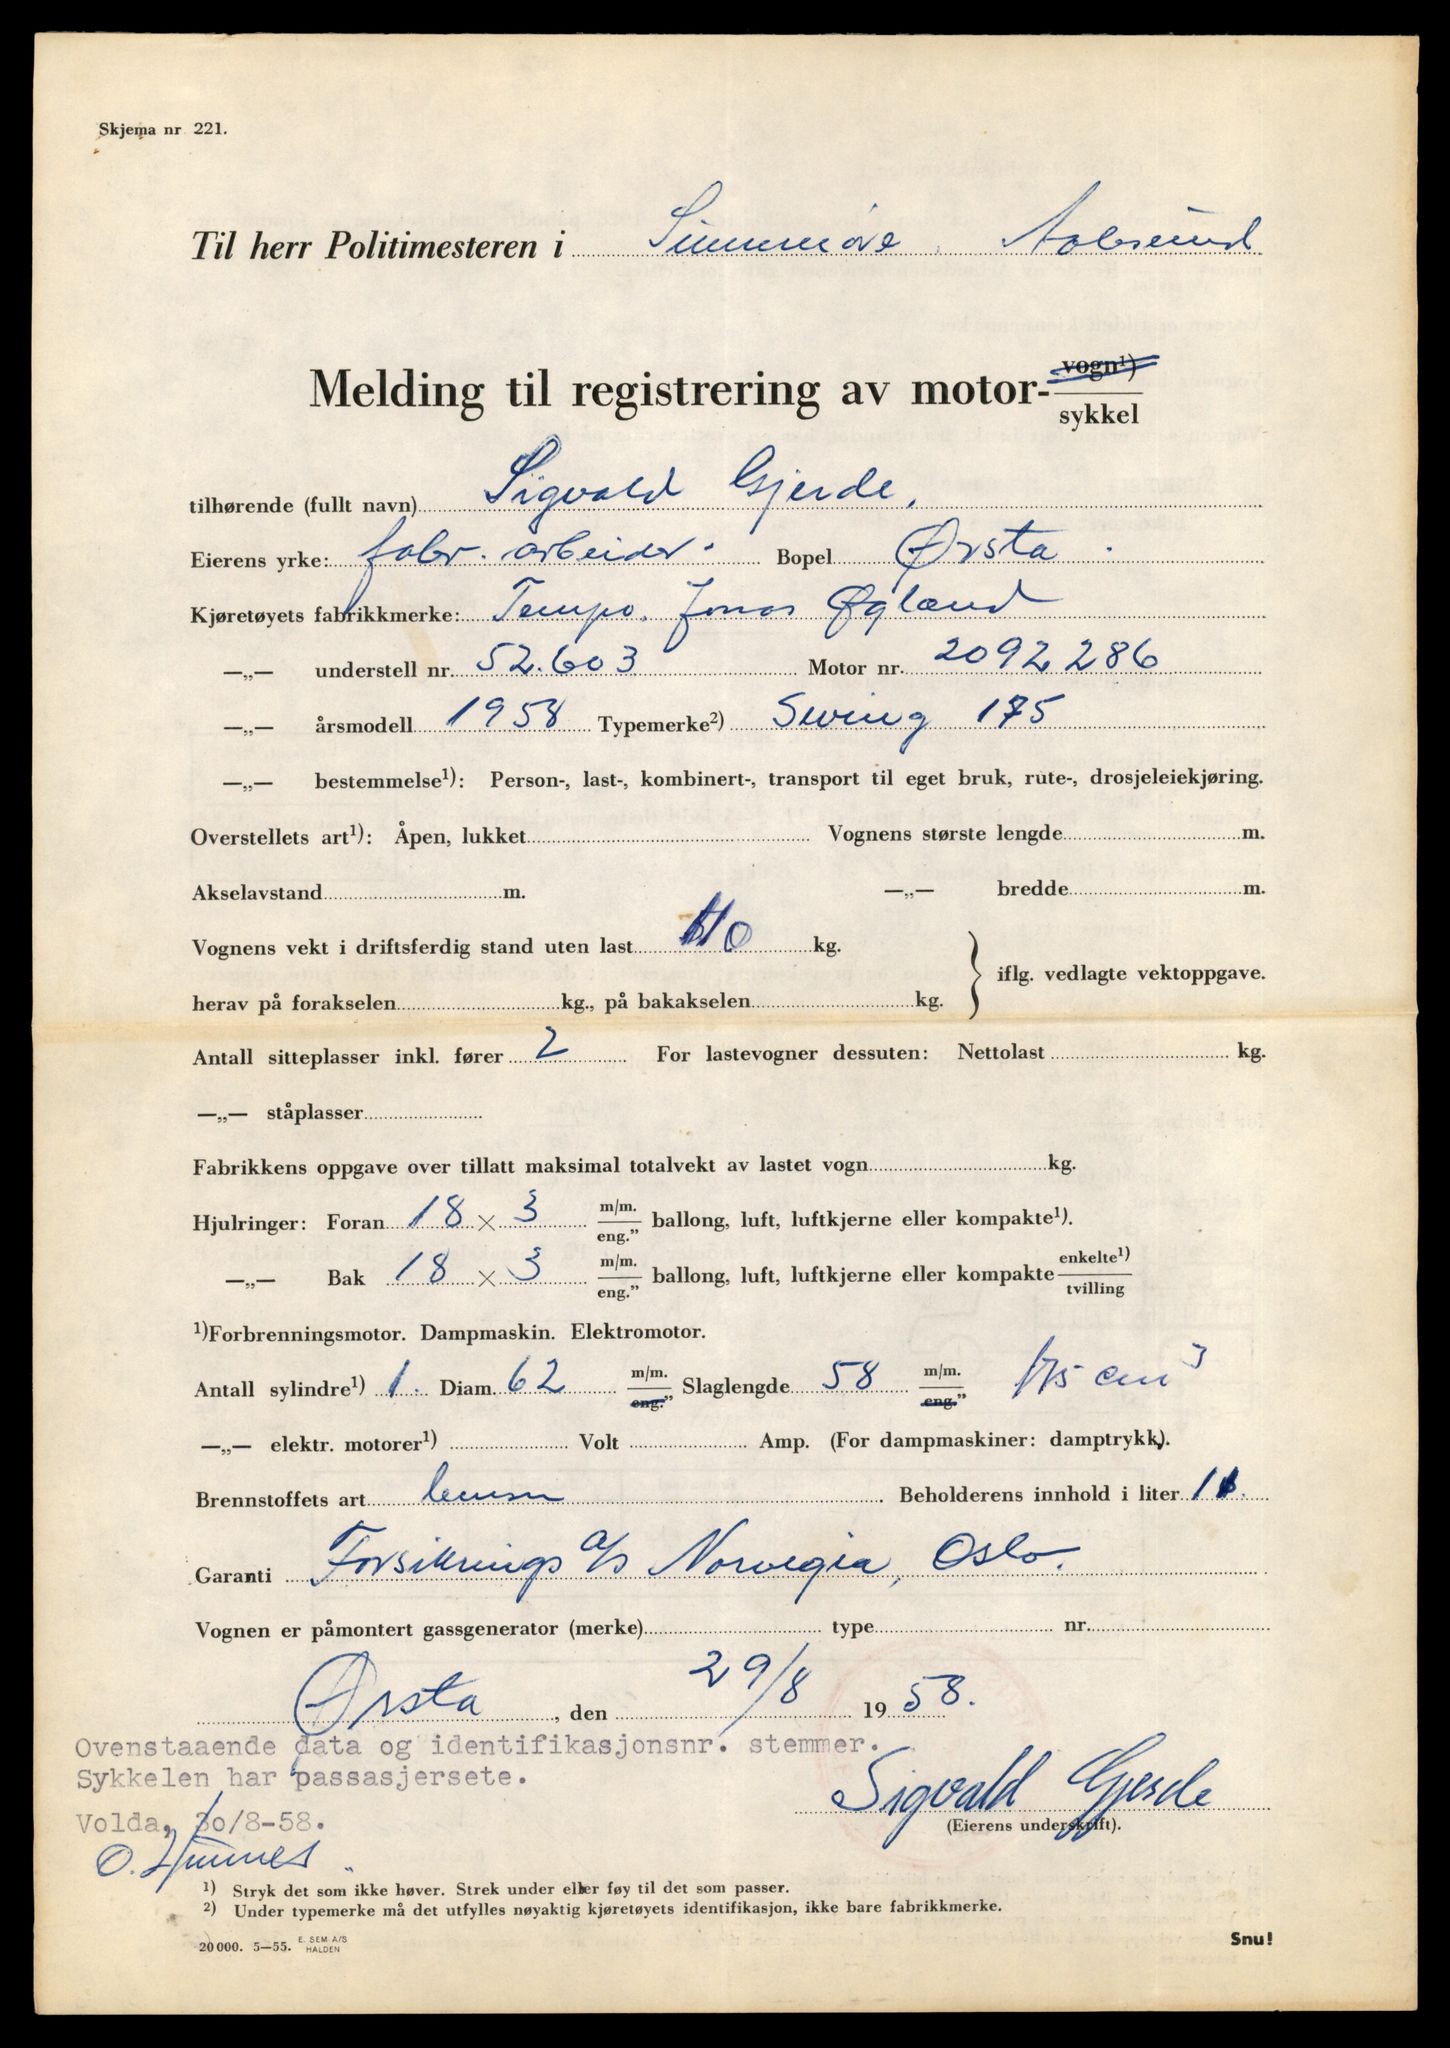 Skjema nr 221.
Til herr Politimesteren i Sunnmøre, Aalesund
Melding til registrering av motor- vogn¹)
sykkel
tilhørende (fullt navn) Sigvald Gjerde.
Eierens yrke: fabr. arbeider. Bopel Ørsta.
Kjøretøyets fabrikkmerke: Tempo. Jonas Øglænd
—„— understell nr. 52.603 Motor nr. 2092286
—„— årsmodell 1958 Typemerke²) Swing 175
—„— bestemmelse¹): Person-, last-, kombinert-, transport til eget bruk, rute-, drosjeleiekjøring.
Overstellets art¹): Åpen, lukket Vognens største lengde m.
Akselavstand m. —„— bredde m.
Vognens vekt i driftsferdig stand uten last 110 kg.
iflg. vedlagte vektoppgave.
herav på forakselen kg., på bakakselen kg.
Antall sitteplasser inkl. fører 2 For lastevogner dessuten: Nettolast kg.
—„— ståplasser
Fabrikkens oppgave over tillatt maksimal totalvekt av lastet vogn kg.
Hjulringer: Foran 18 × 3 m/m. eng." ballong, luft, luftkjerne eller kompakte¹).
—„— Bak 18 × 3 m/m. eng." ballong, luft, luftkjerne eller kompakte enkelte¹) tvilling
¹)Forbrenningsmotor. Dampmaskin. Elektromotor.
Antall sylindre¹) 1. Diam. 62 m/m. eng." Slaglengde 58 m/m. eng." 175 cm³
—„— elektr. motorer¹) Volt Amp. (For dampmaskiner: damptrykk).
Brennstoffets art bensin Beholderens innhold i liter 11.
Garanti Forsikrings a/s Norvegia, Oslo.
Vognen er påmontert gassgenerator (merke) type nr.
Ørsta, den 29/8 1958.
Ovenstaaende data og identifikasjonsnr. stemmer.
Sykkelen har passasjersete.
Sigvald Gjerde
Volda, 30/8-58.
(Eierens underskrift).
O.
¹) Stryk det som ikke høver. Strek under eller føy til det som passer.
²) Under typemerke må det utfylles nøyaktig kjøretøyets identifikasjon, ikke bare fabrikkmerke.
20 000. 5—55. E. SEM A/S HALDEN
Snu!